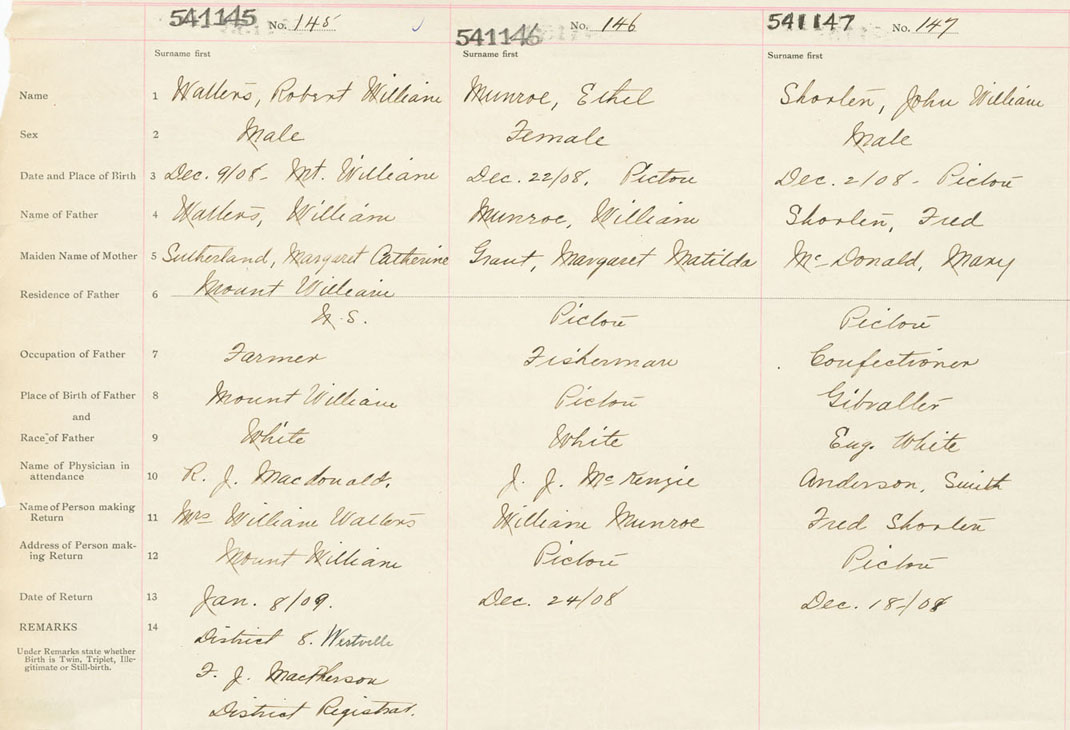 541145 No. 145 541146 No. 146 541147 No. 147
Surname first Surname first Surname first
Name 1 Walters, Robert William Munroe, Ethel Shorten, John William
Sex 2 Male Female Male
Date and Place of Birth 3 Dec. 9/08 - Mt. William Dec. 22/08, Pictou Dec. 2/08 - Pictou
Name of Father 4 Walters, William Munroe, William Shorten, Fred
Maiden Name of Mother 5 Sutherland, Margaret Catherine Grant, Margaret Matilda McDonald, Mary
Residence of Father 6 Mount William
N.S. Pictou Pictou
Occupation of Father 7 Farmer Fisherman Confectioner
Place of Birth of Father 8 Mount William Pictou Gibralter
and
Race of Father 9 White White Eng. White
Name of Physician in
attendance 10 R. J. Macdonald. J. J. McKenzie Anderson, Smith
Name of Person making
Return 11 Mrs William Walters William Munroe Fred Shorten
Address of Person mak-
ing Return 12 Mount William Pictou Pictou
Date of Return 13 Jan. 8/09. Dec. 24/08 Dec. 18/08
REMARKS 14 District 8. Westville
Under Remarks state whether
Birth is Twin, Triplet, Ille-
gitimate or Still-birth.
F. J. MacPherson
District Registrar.